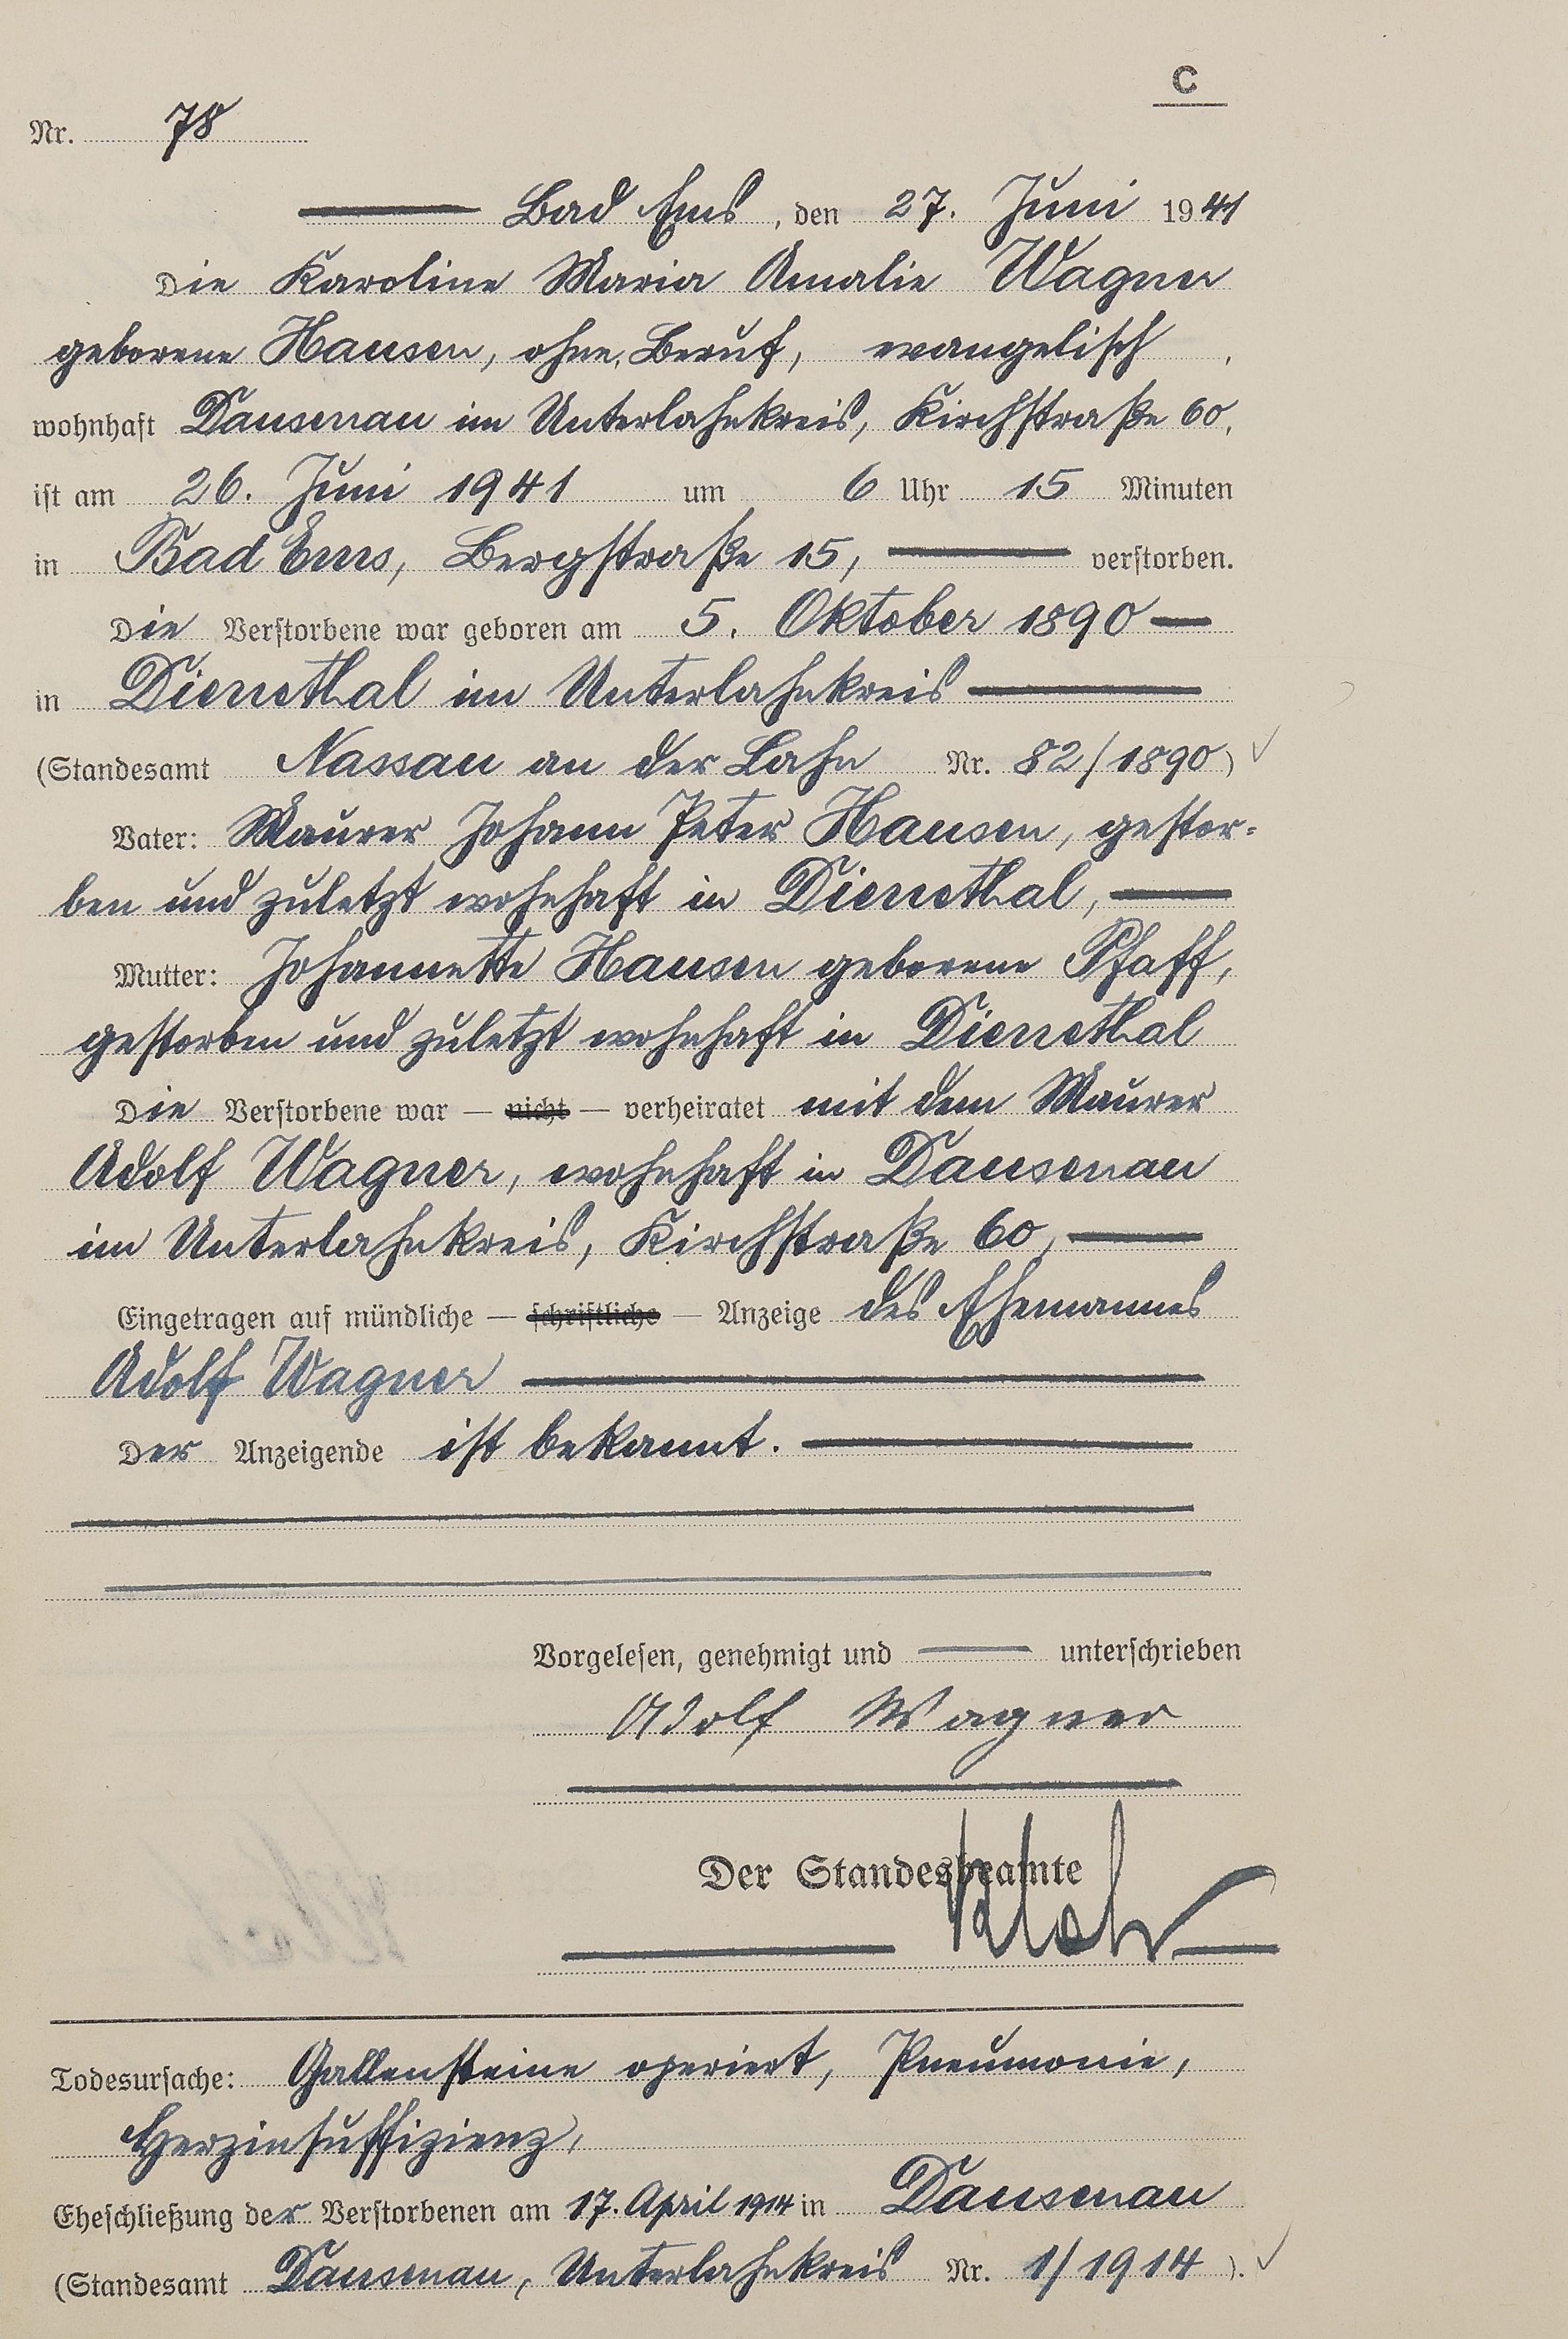 C
Nr. 78
Bad Ems, den 27. Juni 1941
Die Karoline Maria Amalie Wagner
geborene Hausen, ohne Beruf, evangelisch,
wohnhaft Dausenau im Unterlahnkreis, Kirchstraße 60,
ist am 26. Juni 1941 um 6 Uhr 15 Minuten
in Bad Ems, Bergstraße 15, verstorben.
Die Verstorbene war geboren am 5. Oktober 1890
in Dienethal im Unterlahnkreis
(Standesamt Nassau an der Lahn Nr. 82/1890)
Vater: Maurer Johann Peter Hausen, gestor-
ben und zuletzt wohnhaft in Dienethal,
Mutter: Johannette Hausen geborene Pfaff,
gestorben und zuletzt wohnhaft in Dienethal
Die Verstorbene war — nicht — verheiratet mit dem Maurer
Adolf Wagner, wohnhaft in Dausenau
im Unterlahnkreis, Kirchstraße 60,
Eingetragen auf mündliche — schriftliche — Anzeige des Ehemannes
Adolf Wagner
Der Anzeigende ist bekannt.
Vorgelesen, genehmigt und unterschrieben
Adolf Wagner
Der Standesbeamte
Todesursache: Gallensteine operiert, Pneumonie,
Herzinsuffizienz,
Eheschließung der Verstorbenen am 17. April 1914 in Dausenau
(Standesamt Dausenau, Unterlahnkreis Nr. 1/1914).